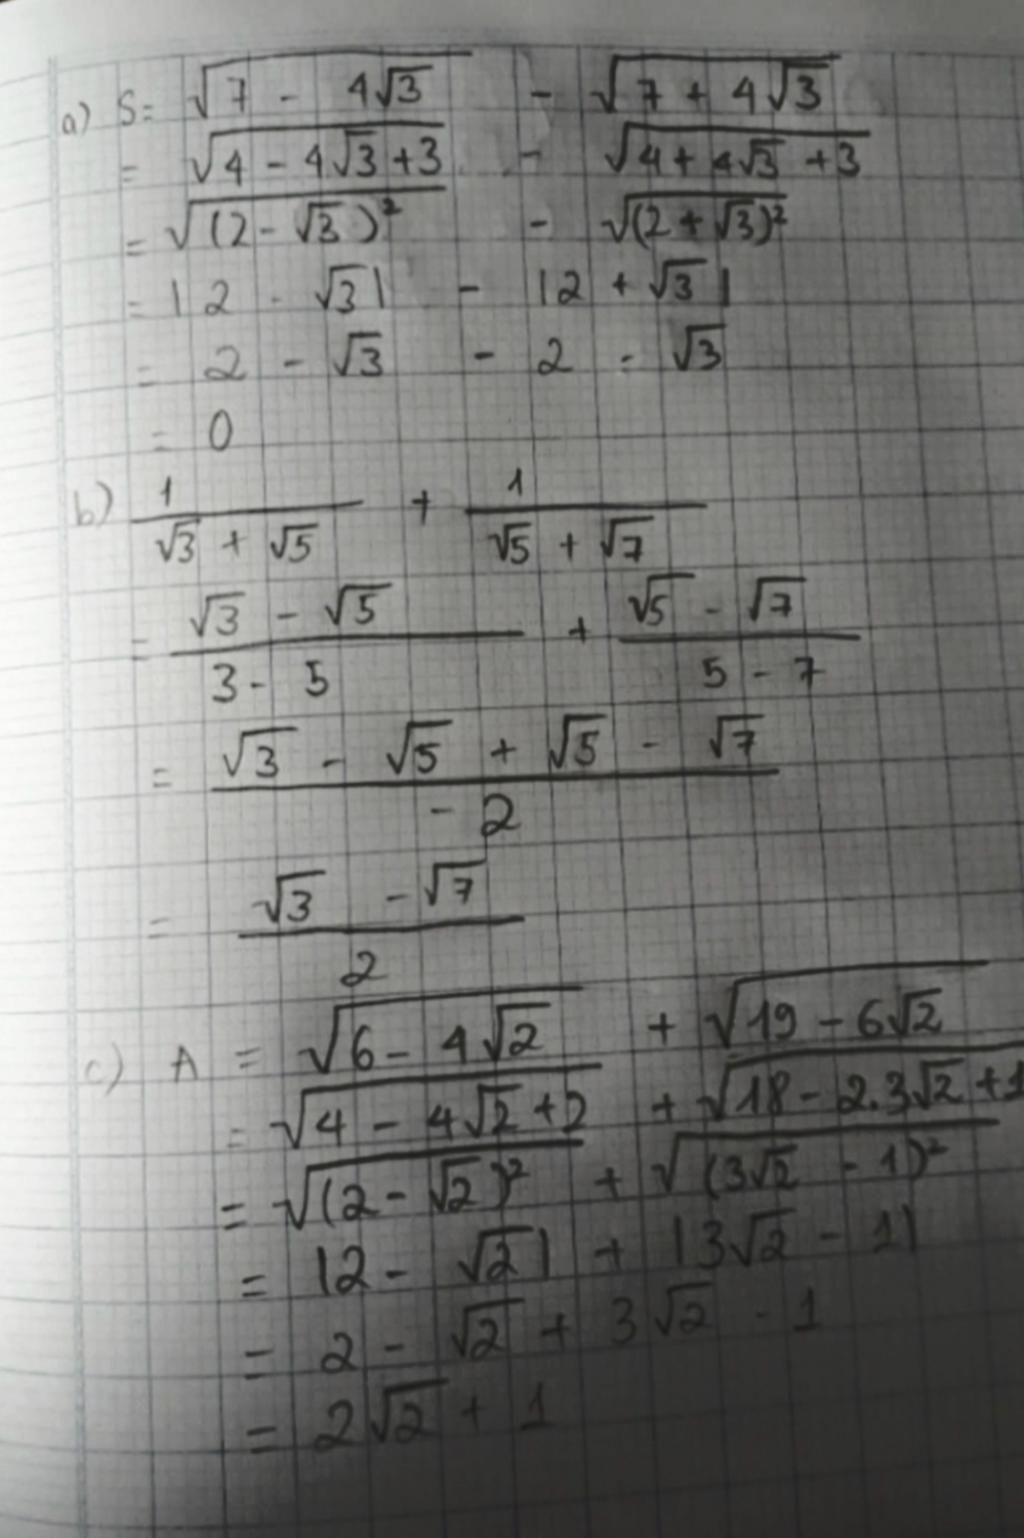 a) S = √(7 - 4√3) - √(7 + 4√3)
= √(4 - 4√3 + 3) - √(4 + 4√3 + 3)
= √((2 - √3)²) - √((2 + √3)²)
= |2 - √3| - |2 + √3|
= 2 - √3 - 2 - √3
= 0
b) 1/(√3 + √5) + 1/(√5 + √7)
= (√3 - √5)/(3 - 5) + (√5 - √7)/(5 - 7)
= (√3 - √5 + √5 - √7)/(-2)
= (√3 - √7)/2
c) A = √(6 - 4√2) + √(19 - 6√2)
= √(4 - 4√2 + 2) + √(18 - 2.3√2 + 1)
= √((2 - √2)²) + √((3√2 - 1)²)
= |2 - √2| + |3√2 - 1|
= 2 - √2 + 3√2 - 1
= 2√2 + 1